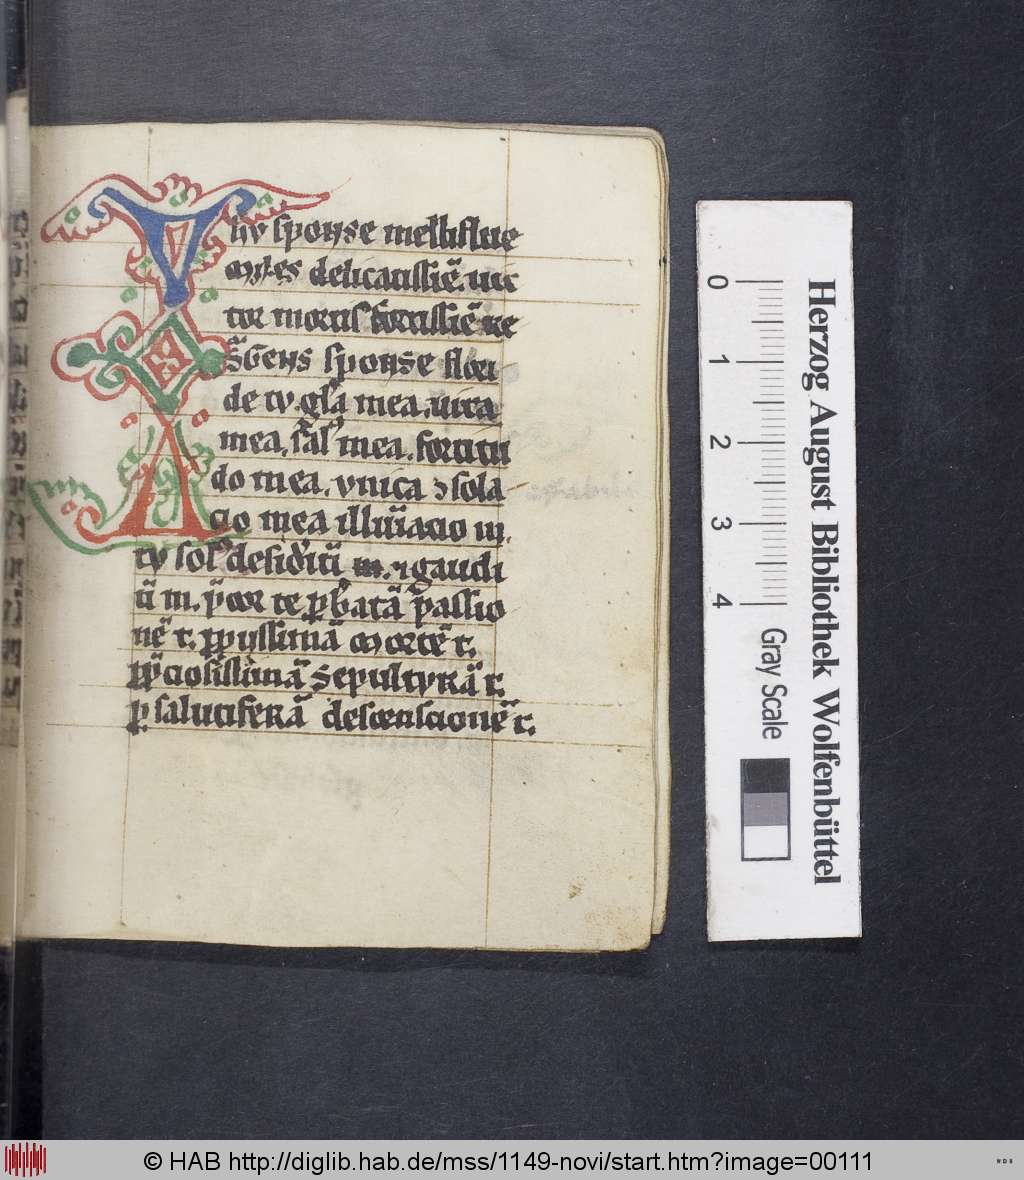 Ihu sponse melliflue
Myles delicatissie. uic
tor mortis fortissie re
surgens sponse flori
de tu. gla mea. uita
mea. sal' mea. fortitu
do mea. unica & sola
cio mea illuiacio m.
tu sol' desideriu m. & gaudi
ū m. p te p passio
nē t. piissimā mortē t.
pciosissimā sepulturā t.
p salutiferā descensionē t.
0 1 2 3 4
Gray Scale
Herzog August Bibliothek Wolfenbüttel
© HAB http://diglib.hab.de/mss/1149-novi/start.htm?image=00111